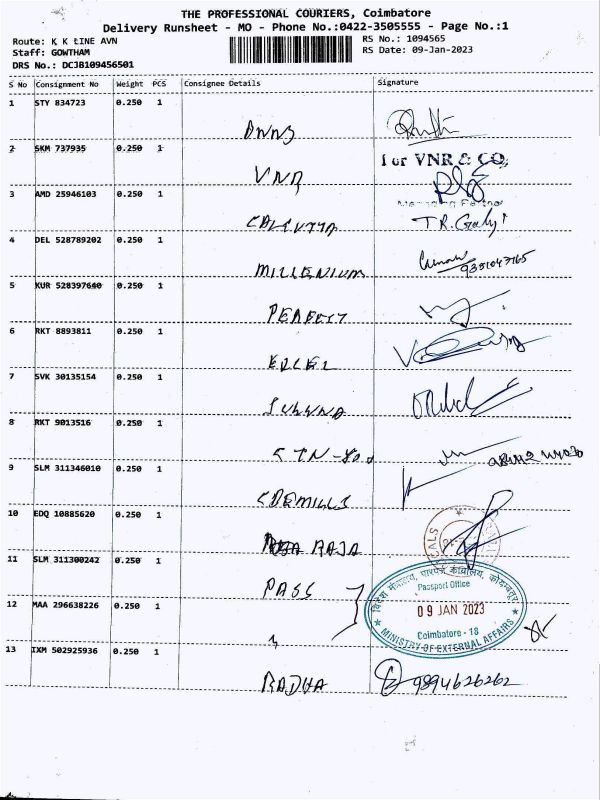 THE PROFESSIONAL COURIERS, Coimbatore
Delivery Runsheet - MO - Phone No.:0422-3505555 - Page No.:1
Route: K K LINE AVN
RS No.: 1094565
Staff: GOWTHAM
RS Date: 09-Jan-2023
DRS No.: DCJB109456501
S No Consignment No Weight PCS Consignee Details Signature
1 STY 834723 0.250 1
2 SKM 737935 0.250 1
For VNR & CO.
VNR
Managing Partner
3 AMD 25946103 0.250 1
T.R.
4 DEL 528789202 0.250 1
MILLENIUM
5 KUR 528397640 0.250 1
PERFECT
6 RKT 8893811 0.250 1
EXCEL
7 SVK 30135154 0.250 1
8 RKT 9013516 0.250 1
9 SLM 311346010 0.250 1
10 EDQ 10885620 0.250 1
RAJA
11 SLM 311300242 0.250 1
PASS
विदेश मंत्रालय, पासपोर्ट कार्यालय, कोयम्बतूर
Passport Office
09 JAN 2023
Coimbatore - 18
MINISTRY OF EXTERNAL AFFAIRS
12 MAA 296638226 0.250 1
13 IXM 502925936 0.250 1
RADHA 9894626262